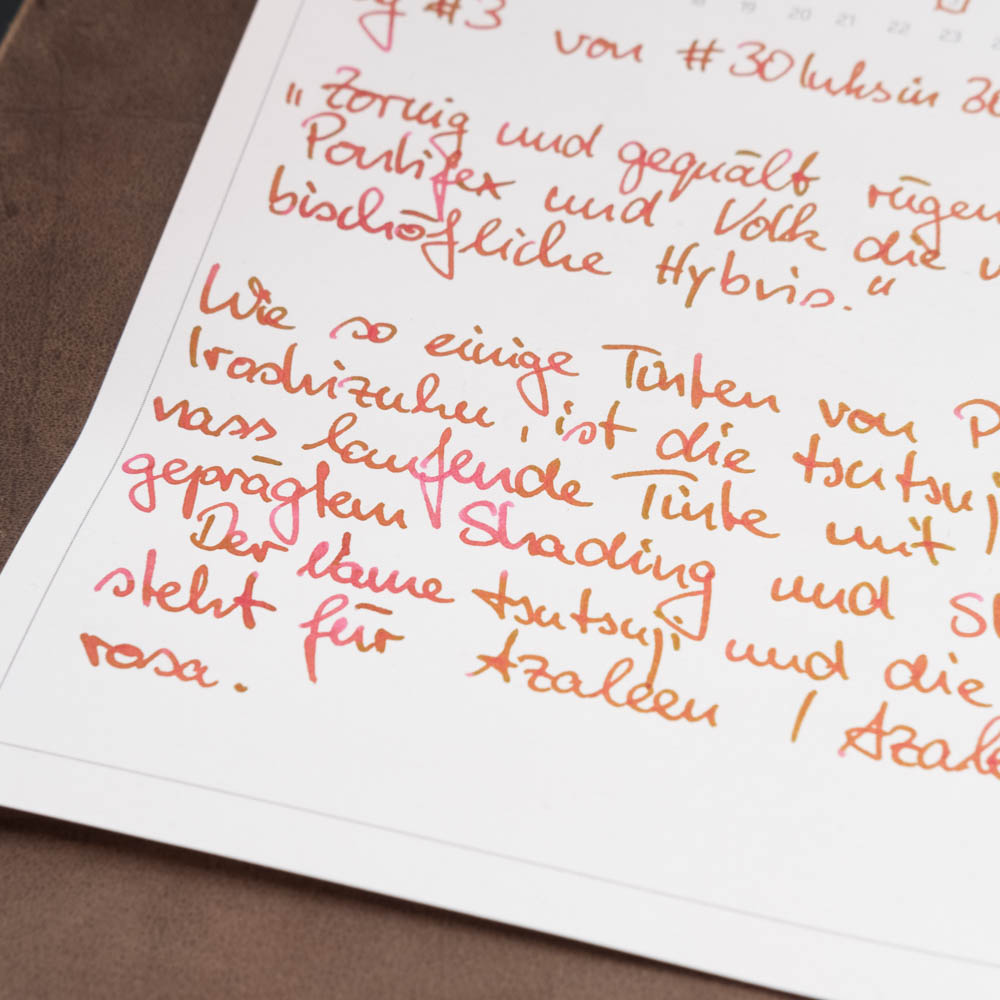 18 19 20 21 22 23
g #3 von #30Inksin 30
„Zornig und gequält rügen
Pontifex und Volk die
bischöfliche Hybris.“
Wie so einige Tinten von P
Iroshizuku, ist die tsutsuji
nass laufende Tinte mit
geprägtem Shading und Sh
Der Name tsutsuji und die
steht für Azaleen / Azale
rosa.